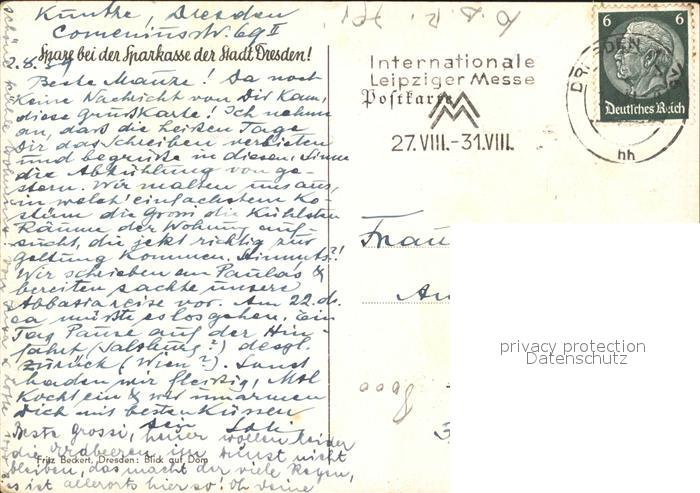 Kunthe, Dresden
Comeniusstr. 69 II
Spare bei der Sparkasse der Stadt Dresden!
2.8.39
Beste Mauze! Da noch
keine Nachricht von Dir kam,
diese Grußkarte! Ich nehm
an, daß die heißen Tage
Dir das Schreiben verbieten
und begrüße in diesem Sinne
die Abkühlung von ge-
stern. Wir malten uns aus,
in welch' einfachstem Ko-
stüm die Grossi die kühlsten
Räume der Wohnung auf-
sucht, die jetzt richtig zur
Geltung kommen. Stimmts?!
Wir schrieben an Paulas &
bereiten sachte unsere
Abbasiareise vor. Am 22. ds.
ca müßte es losgehen, ein
Tag Pause auf der Hin-
fahrt (Salzburg?) desgl.
zurück (Wien?). Sonst
baden wir fleißig,
kocht ein & wir umarmen
Dich mit besten Küssen
Dein
Beste Grossi, heuer wollen leider
die Erdbeeren im nicht
Fritz Beckert, Dresden: Blick auf Dom
bleiben, das macht der viele Regen,
es ist allerorts hier so! Oh Deine
Internationale
Leipziger Messe
Postkarte
27.VIII.-31.VIII.
DRESDEN
hh
6 6
Deutsches Reich
Frau
An
privacy protection
Datenschutz